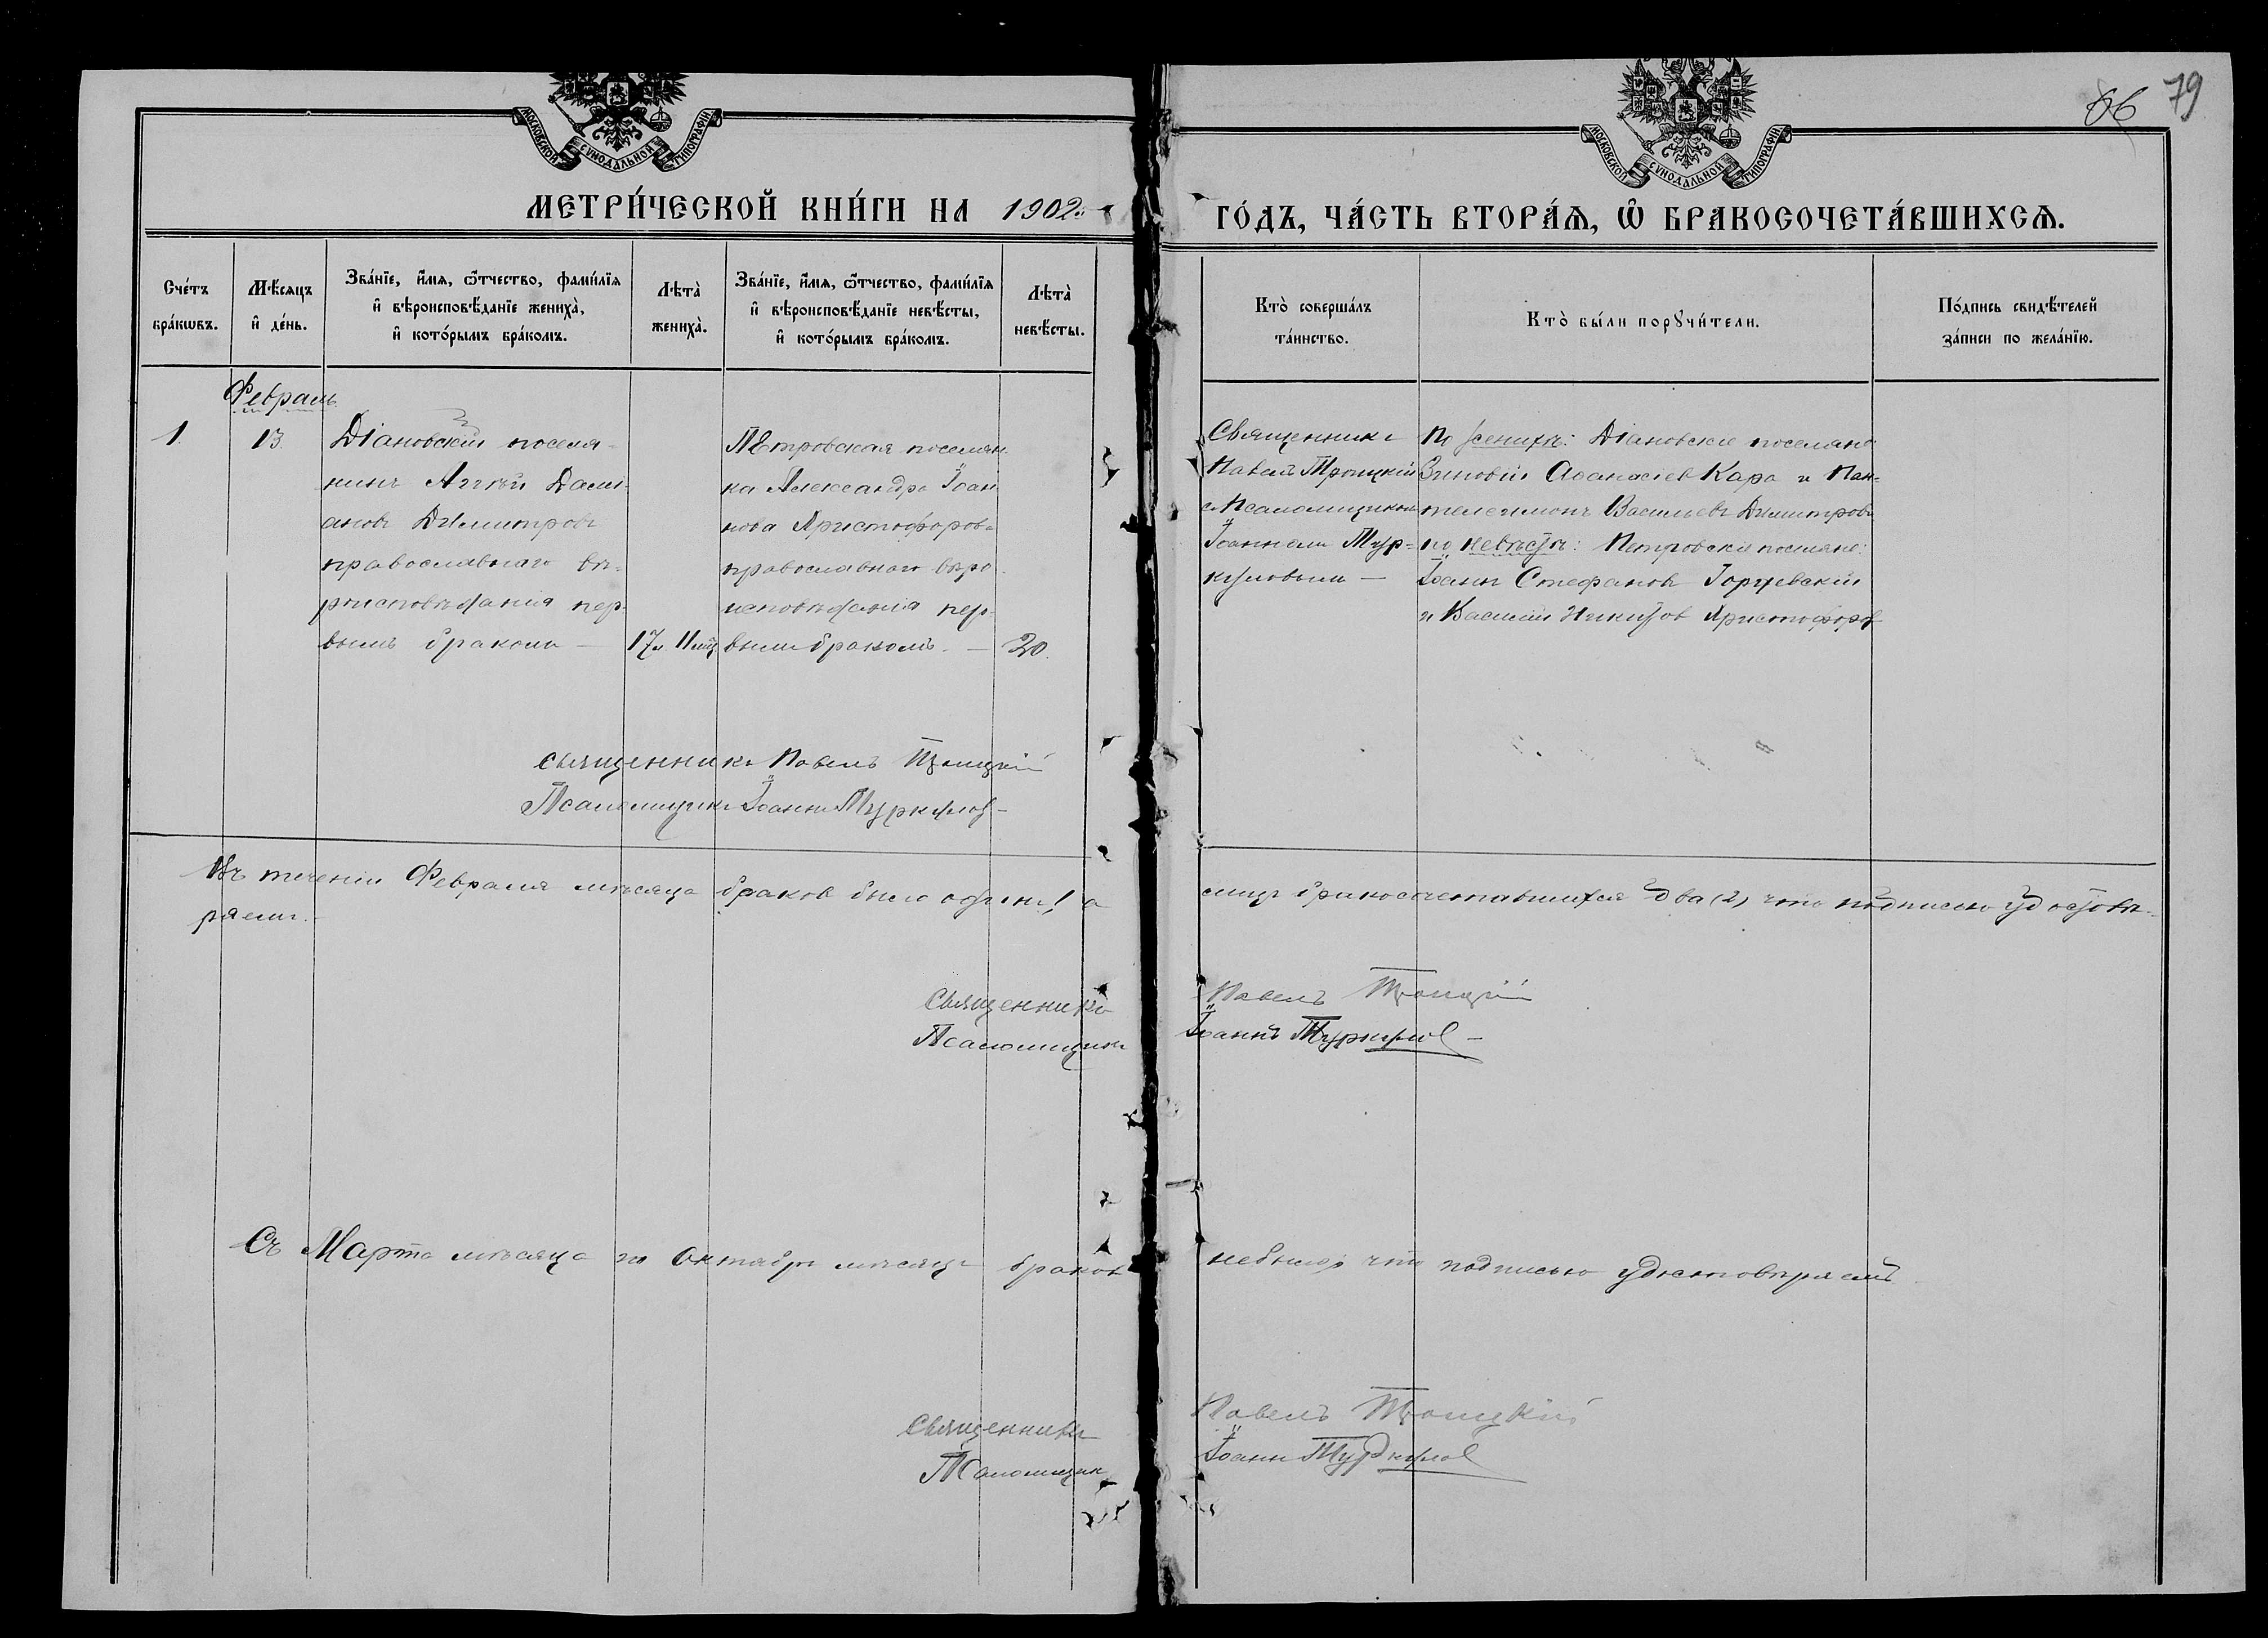 66 79
МОСКОВСКОЙ СѴНОДАЛЬНОЙ ТИПОГРАФІИ
МОСКОВСКОЙ СѴНОДАЛЬНОЙ ТИПОГРАФІИ
МЕТРИ́ЧЕСКОЙ КНИ́ГИ НА 1902й
ГО́ДЪ, ЧА́СТЬ ВТОРА́Ѧ, Ѽ БРАКОСОЧЕТА́ВШИХСѦ.
Сче́тъ
бра́кѡвъ.
Мѣ́сяцъ
и҆ де́нь.
Зва́нїе, и҆́мѧ, ѻ҆́тчество, фами́лїѧ
и҆ вѣроисповѣ́данїе жениха̀,
и҆ кото́рымъ бра́комъ.
Лѣта̀
жениха̀.
Зва́нїе, и҆́мѧ, ѻ҆́тчество, фами́лїѧ
и҆ вѣроисповѣ́данїе невѣ́сты,
и҆ кото́рымъ бра́комъ.
Лѣта̀
невѣ́сты.
Кто̀ соверша́лъ
та́инство.
Кто̀ бы́ли порꙋчи́тели.
По́дпись свидѣ́телей
за́писи по жела́нїю.
Февраль
1.
13.
Діановскій поселя-
нинъ Аггей Дами-
ановъ Димитровъ
православнаго вѣ-
роисповѣданія пер-
вымъ бракомъ —
17 и 11 мѣц
Петровская поселян-
ка Александра Іоан-
нова Христофорова
православнаго вѣро-
исповѣданія пер-
вымъ бракомъ. —
20.
Священникъ
Павелъ Троицкій
съ Псаломщикомъ
Іоанномъ Тур-
куловымъ —
По женихѣ: Діановскіе поселяне
Зиновій Аѳанасіевъ Кара и Пан-
телеимонъ Васильевъ Димитровъ
по невѣстѣ: Петровскіе поселяне:
Іоаннъ Стефановъ
и Василій Никитовъ Христофоров
Священникъ Павелъ Троицкій
Псаломщикъ Іоаннъ Туркулов —
Въ теченіи Февраля мѣсяца браковъ было одинъ 1 а
лицъ бракосочетавшихся два (2) что подписью удостовѣ-
ряемъ.
Священникъ Павелъ Троицкій
Псаломщикъ Іоаннъ Туркулов —
Съ Марта мѣсяца по Октябрь мѣсяцъ браковъ
небыло, что подписью удостовѣряемъ
Священникъ Павелъ Троицкій
Псаломщик Іоаннъ Туркулов